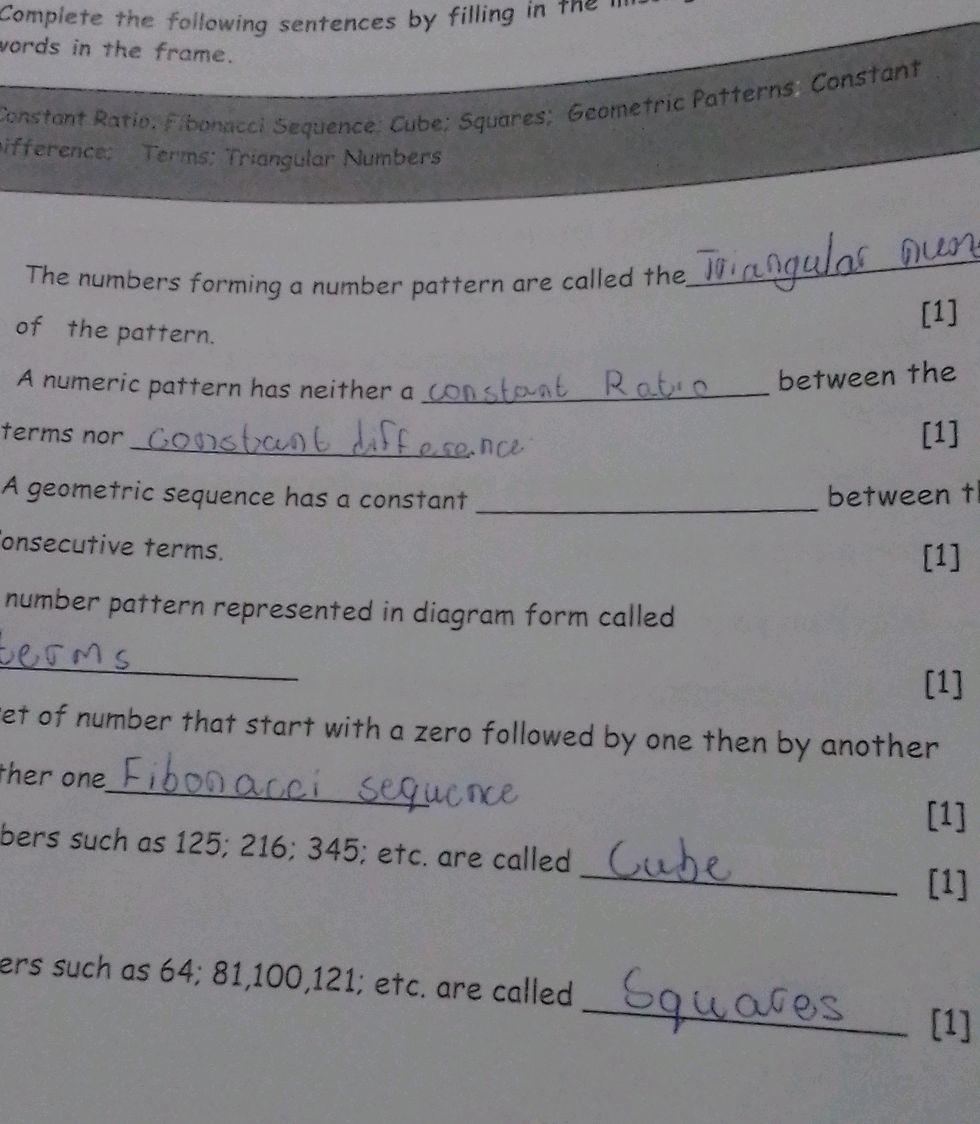 Complete the following sentences by filling in the
words in the frame.
Constant Ratio; Fibonacci Sequence; Cube; Squares; Geometric Patterns; Constant
ifference; Terms; Triangular Numbers
The numbers forming a number pattern are called the Triangular
[1]
of the pattern.
A numeric pattern has neither a constant Ratio between the
terms nor constant difference
[1]
A geometric sequence has a constant ____ between
onsecutive terms.
[1]
number pattern represented in diagram form called
terms
[1]
et of number that start with a zero followed by one then by another
ther one Fibonacci sequence
[1]
bers such as 125; 216; 345; etc. are called Cube
[1]
ers such as 64; 81,100,121; etc. are called Squares
[1]